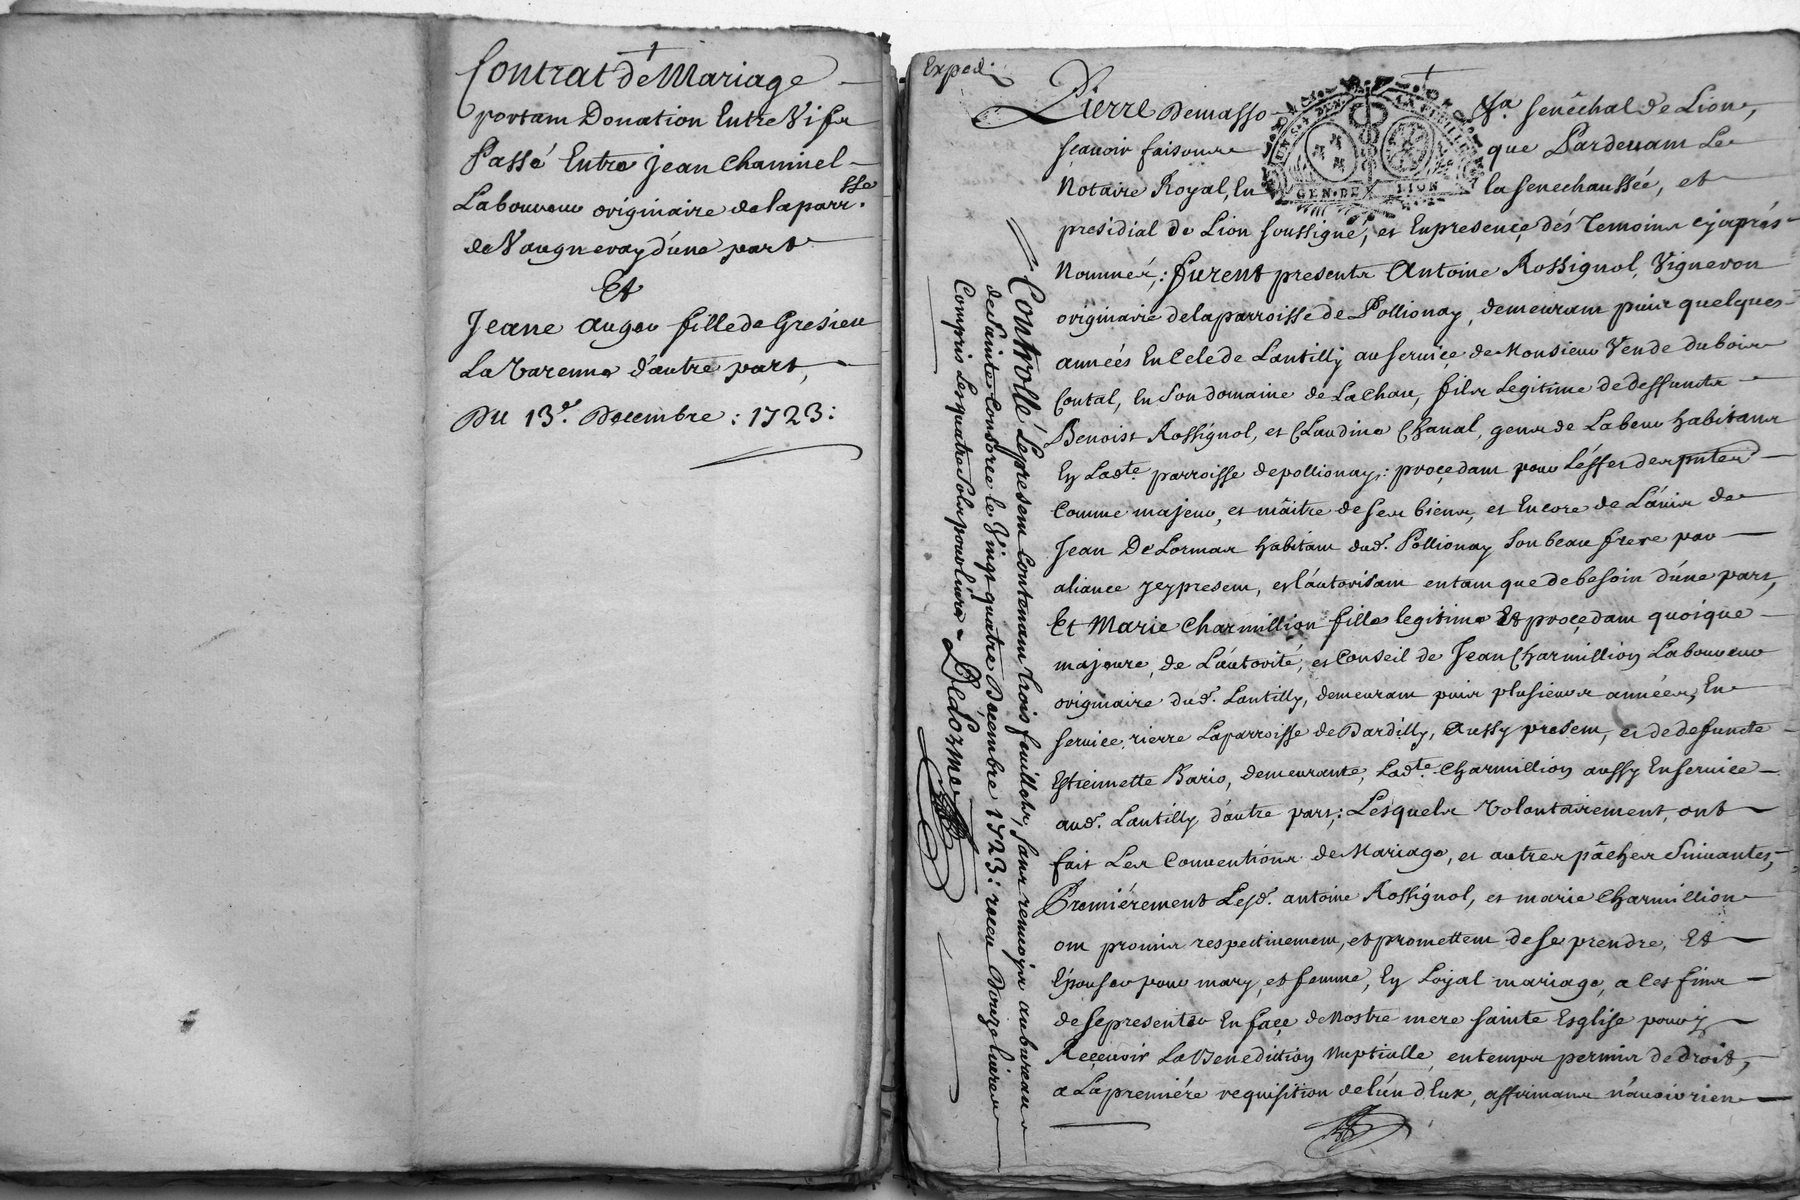 Contrat de Mariage
portant Donation Entre Vifs
Passé Entre Jean Chaminel
Laboureur originaire de la parr.sse
de Vaugneray d'une part
Et
Jeane auger fille de Gresieu
La Varenne d'autre part,
Du 13e. Decembre : 1723 :
Exped.
Pierre Demasso
sr. senêchal de Lion,
sçavoir faisons
que Pardevant Le
Notaire Royal, En
la senechaussée, et
GEN. DE LION
presidial de Lion soussigné, et En presence dés Temoins cy aprés
Nommés, : furent presents Antoine Rossignol, Vigneron
originaire de la parroisse de Pollionay, demeurant puis quelques
années En Cele de Lantilly au service de Monsieur Vende du bois
Contal, En son domaine de La Chau, fils Legitime de deffuncts
Benoist Rossignol, et Claudine Chanal, gens de Labeur habitans
En Ladte. parroisse de pollionay, : proçedant pour L'effet des pntes
Comme majeur, et mâitre de ses biens, et Encore de L'ávis de
Jean De Lormas habitant dud. Pollionay son beau frere par
aliance icy present, et l'áutorisant entant que de besoin d'úne part,
Et Marie Charmillion fille legitime Et proçedant quoique
majeure, de L'áutorité, et Conseil de Jean Charmillion Laboureur
originaire dud. Lantilly, demeurant puis plusieurs années, En
service, rierre La parroisse de Dardilly, aussy present, et de defuncte
Estiennette Bario, demeurante, Ladte. Charmillion aussy En service
aud. Lantilly d'áutre part; : Lesquels Volontairement, ont
fait Les Conventions de Mariage, et autres pâches suivantes,
Premiérement Lesd. antoine Rossignol, et marie Charmillion
ont promis respectivement, et promettent de se prendre, Et
Epouser pour mary, et femme, En Loyal mariage, a Ces fins
de se presenter En façe de Nostre mere sainte Esglise pour y
Reçevoir La Benediction Nuptialle, en temps permis de droit,
a La premiére requisition de l'ún d'Eux, affirmans n'ávoir rien
Controllé Le present Contenant trois feuillets, sans renvoyer au bureau
de Sainte Consorce le Vingt quatre Decembre 1723 : receu Douze livres
Compris Les quatre sols pour livre. Delorme